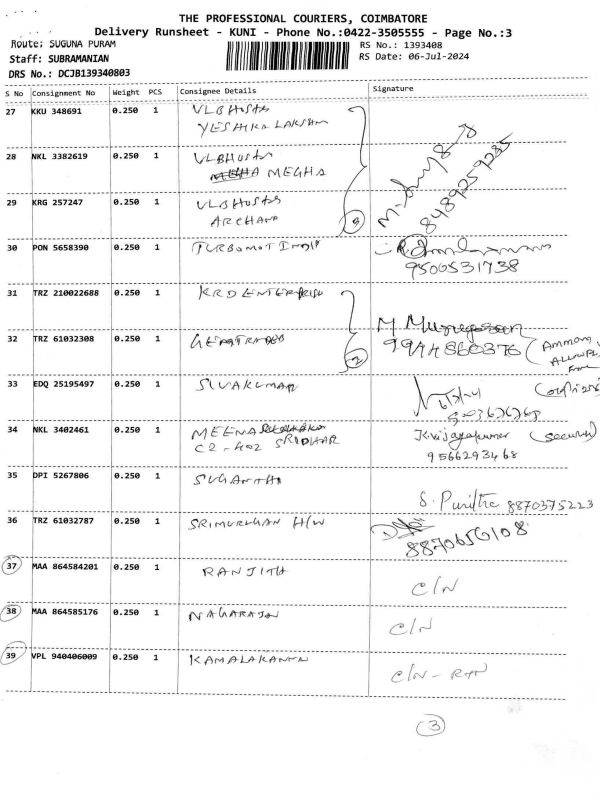 THE PROFESSIONAL COURIERS, COIMBATORE
Delivery Runsheet - KUNI - Phone No.:0422-3505555 - Page No.:3
Route: SUGUNA PURAM RS No.: 1393408
Staff: SUBRAMANIAN RS Date: 06-Jul-2024
DRS No.: DCJB139340803
S No Consignment No Weight PCS Consignee Details Signature
27 KKU 348691 0.250 1 VLB Hostag
28 NKL 3382619 0.250 1 VLB Hostag
MEGHA
29 KRG 257247 0.250 1 VLB Hostag
ARCHANA
8489259285
30 PON 5658390 0.250 1 TURBOMOT INDIA
9500531738
31 TRZ 210022688 0.250 1 KRD ENTERPRISE
M Murugesan
32 TRZ 61032308 0.250 1
9944860376
2
33 EDQ 25195497 0.250 1 SIVAKUMAR
34 NKL 3402461 0.250 1 MEENA
C2-402 SRIDHAR
K.vijayakumar (security)
9566293468
35 DPI 5267806 0.250 1 SUGANTHI
S. Pavithra 8870375223
36 TRZ 61032787 0.250 1 SRIMURUGAN H/W
8870656108
37 MAA 864584201 0.250 1 RANJITH C/N
38 MAA 864585176 0.250 1 NAGARAJAN C/N
39 VPL 940406009 0.250 1 KAMALAKANNAN C/N - RTN
3